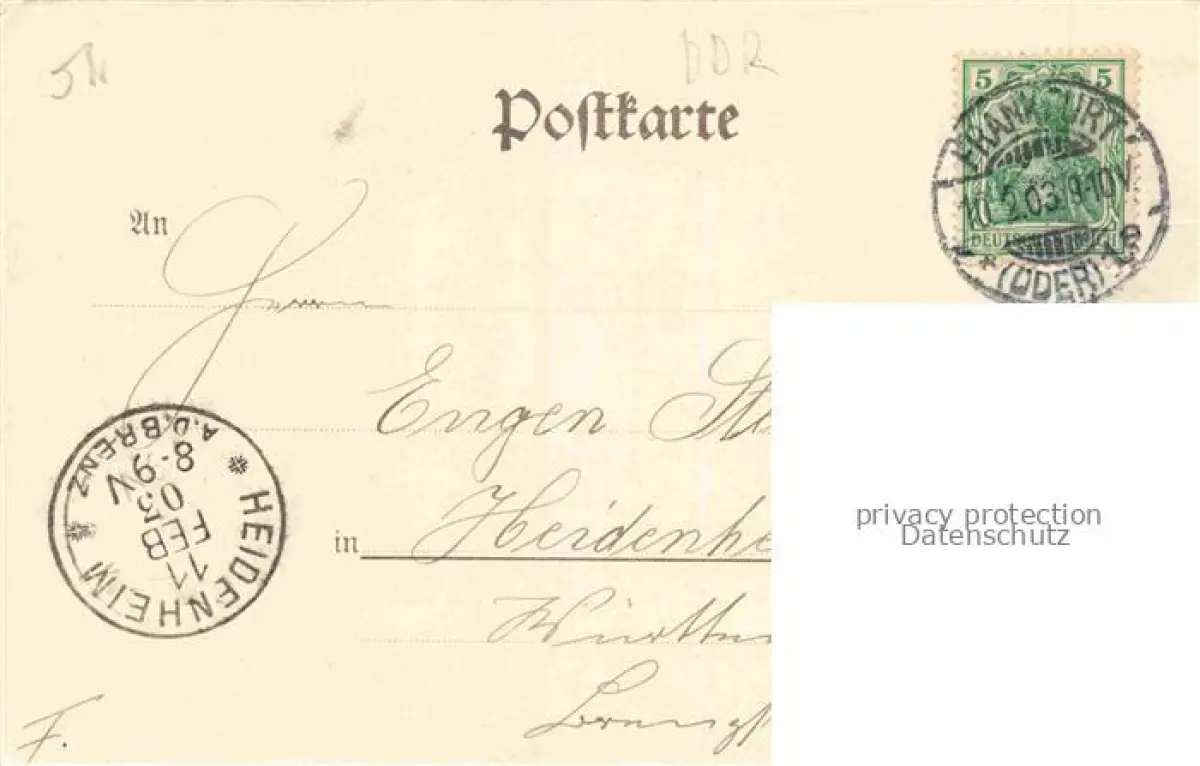 DDR
Postkarte
5 5
FRANKFURT
10.2.03.9-10V
DEUTSCHES REICH
* (ODER) 1e
An
Herrn
Eugen St
in Heidenhe
Württem
Brenzst
* HEIDENHEIM *
A.D.BRENZ
8-9V
03
FEB
11
F.
privacy protection
Datenschutz